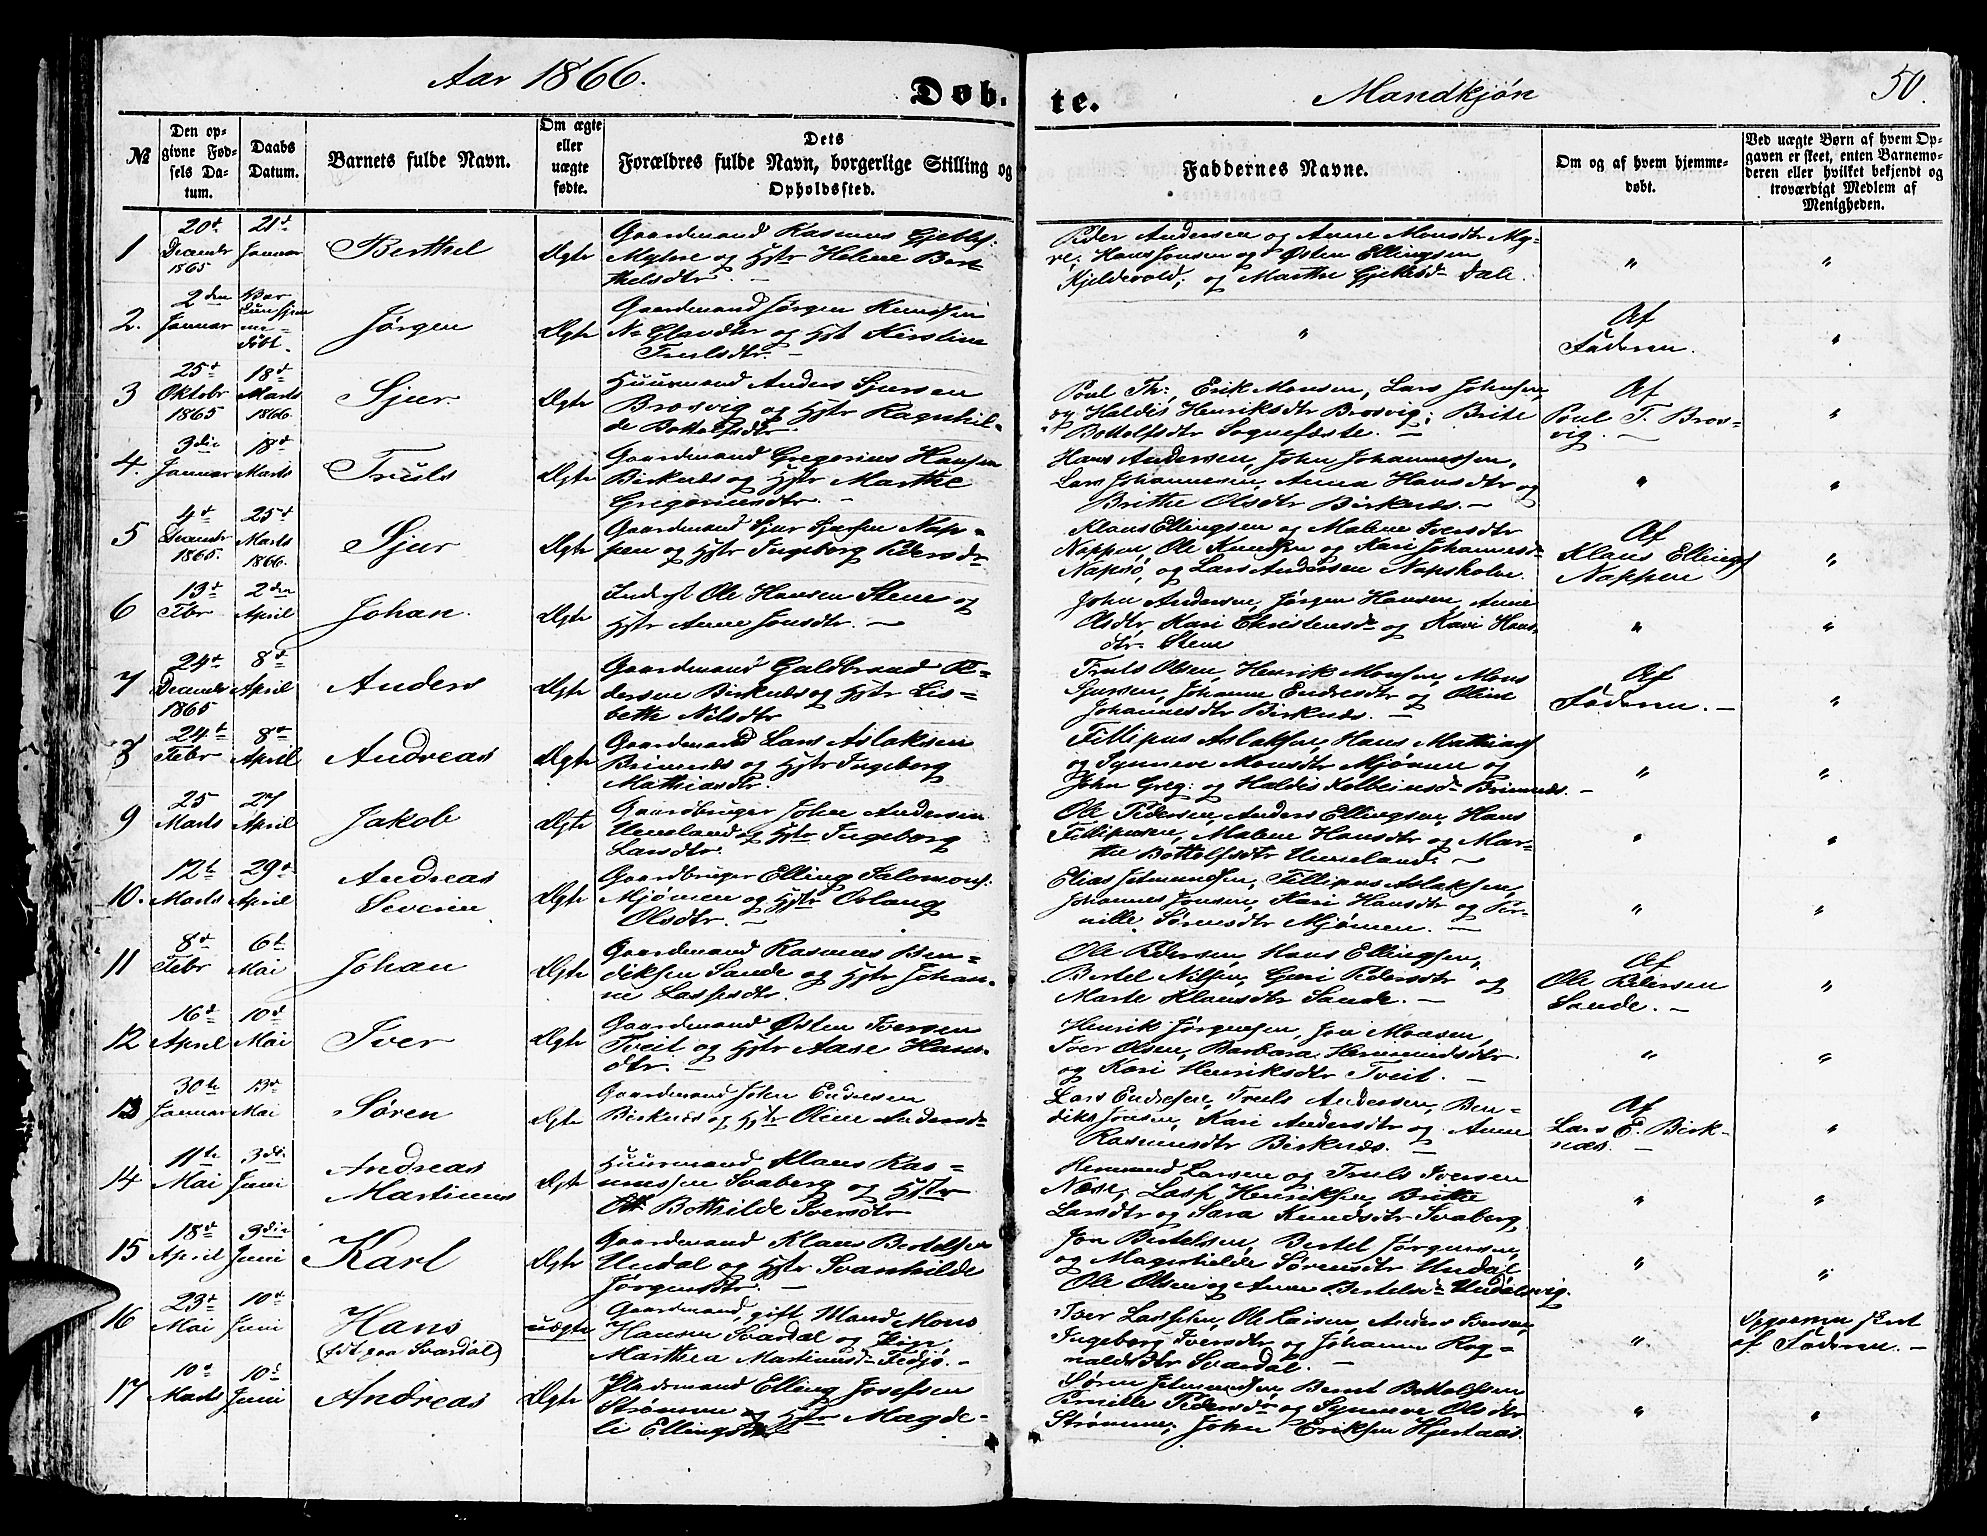 Aar 1866.
Døb-
te.
Mandkjøn
50.
№
Den op-
givne Fød-
sels Da-
tum.
Daabs
Datum.
Barnets fulde Navn.
Om ægte
eller
uægte
fødte.
Dets
Forældres fulde Navn, borgerlige Stilling og
Opholdssted.
Faddernes Navne.
Om og af hvem hjemme-
døbt.
Ved uægte Børn af hvem Op-
gaven er skeet, enten Barnemo-
deren eller hvilket bekjendt og
troværdigt Medlem af
Menigheden.
1
20de
Decembr
1865
21de
Januar
Berthel
Ægte
Gaardmand Rasmus
og Hstr Helene Ber-
thelsdtr. —
Peder Andersen og Anne Monsdtr My-
re; Hans Jonsen og Østen Ellingsen
Kjeldevold; og Marthe Dale.
"
"
2.
2den
Januar
Bar
hjem
me-
døbt.
Jørgen
Ægte
Gaardmand Jørgen Knudsen
og Hst Kirstine
Trulsdtr. —
"
Af
Faderen.
"
3
25de
Oktobr
1865
18de
Marts
1866.
Sjur
Ægte
Huusmand Anders Sjursen
Brosvig og Hstr Ragnhil-
de Bottolfsdtr. —
Poul Th:, Erik Monsen, Lars Johnsen,
og Haldis Henriksdtr Brosvig; Brite
Bottolfsdtr Sognefæste. —
Af
Poul T. Bros-
vig. —
"
4.
3die
Januar
18de
Marts
Truls
Ægte
Gaardmand Gregorius Hansen
Birknæs og Hstr Marthe
Gregoriusdtr. —
Hans Andersen, John Johannessen,
Lars Johannesen, Anna Hansdtr og
Brithe Olsdtr Birknæs. —
"
"
5
4de
Decembr
1865
25de
Marts
1866.
Sjur
Ægte
Gaardmand Sjur Nap-
pen og Hstr Ingeborg Pedersdr
Klaus Ellingsen og Malene Iversdtr
Nappen, Ole Knudsen og Kari Johannesd.
Napsø, og Lars Andersen Napsholm.
Af
Klaus Ellings
Nappen
"
6
13de
Febr
2den
April
Johan.
Ægte
Inderst Ole Hansen Stene og
Hstr Anne Jonsdtr. —
John Andersen, Jørgen Hansen, Anne
Olsdtr Kari og Kari Hans-
dtr. Stene
"
"
7
24de
Decembr
1865
8de
April
Anders
Ægte
Gaardmand Guldbrand Pe-
dersen Birknæs og Hstr Lis-
bette Nilsdtr
Truls Olsen, Henrik Monsen, Mons
Sjursen, Johanne Endresdtr og Oline
Johannesdtr Birknæs. —
Af
Faderen. —
"
8
24de
Febr
8de
April
Andreas
Ægte
Gaardmand Lars Aslaksen
Brimnæs og Hstr Ingeborg
Mathiasdtr.
Fillipus Aslaksen, Hans Mathias
og Synneve Monsdtr Mjømen og
John Greg: og Haldis Kolbeinsd. Brimnæs. —
"
"
9
25
Marts
27
April
Jakob
Ægte
Gaardbruger John Andersen
Unneland og Hstr Ingeborg
Larsdtr.
Ole Pedersen, Anders Ellingsen, Hans
Fillipusen, Malene Hansdtr og Mar-
the Bottolfsdtr Unneland. —
"
"
10.
12te
Marts
29de
April
Andreas
Severin
Ægte
Gaardbruger Elling Salomons.
Mjømen og Hstr
Olsdtr. —
Elias Jetmundsen, Fillipus Aslaksen,
Johannes Jonsen, Kari Hansdtr og Per-
nille Sørensdtr Mjømen. —
"
"
11
8de
Febr
6te
Mai
Johan
Ægte
Gaardmand Rasmus Ben-
diksen Sande og Hstr Johan-
ne Lassesdtr.
Ole Pedersen, Hans Ellingsen,
Bertel Nilsen, Guri Pedersdtr og
Marte Klausdtr Sande. —
Af
Ole Pedersen
Sande. —
"
12
16de
April
10de
Mai
Iver
Ægte
Gaardmand Østen Iversen
Tveit og Hstr Aase Hans-
dtr. —
Henrik Jørgensen, Jon Monsen,
Iver Olsen, Barbara Hermundsdtr
og Kari Henriksdtr Tveit. —
"
"
13
30te
Januar
13de
Mai
Søren
Ægte
Gaardmand John Endresen
Birknæs og Hstr Oline Andersd.
Lars Endresen, Truls Andersen, Ben-
dik Jonsen, Kari Andersdtr og Anne
Rasmusdtr Birknæs. —
Af
Lars E. Birk-
næs. —
"
14
11te
Mai
3die
Juni
Andreas
Martinus
Ægte
Huusmand Klaus Ras-
mussen Svaberg og Hstr
Bothilde Iversdtr
Hermund Larsen og Truls Iversen
Næse; Lasse Henriksen, Britte
Larsdtr og Sara Knudsdtr Svaberg,
"
"
15
18de
April
3die
Juni
Karl
Ægte
Gaardmand Klaus Bertelsen
Undal og Hstr Svanhilde
Jørgensdtr. —
Jon Bertelsen, Bertel Jørgensen,
og Magnhilde Sørensdtr Undal
Ole Olsen og Anne Bertelsd. Undalsvig.
"
"
16
23de
Mai
10de
Juni
Hans
(fdt paa Svardal)
uægte
Gaardmand, gift Mand Mons
Hansen Svardal og Pige
Marthea Martinusd. Fedjø. —
Iver Lassesen, Ole Larsen, Anders Iversen,
Ingeborg Iversdtr og Johanne Rog-
naldsdtr Svardal. —
"
Opgaven skeet
af Faderen. —
17
10de
Marts
10de
Juni
Andreas
Ægte
Pladsmand Elling Josefsen
Strømmen og Hstr Magde-
li Ellingsdtr
Søren Jetmundsen, Bernt Bottolfsen
Pernille Pedersdr og Synneve Olsdtr
Strømmen; John Eriksen Hjertaas.
"
"